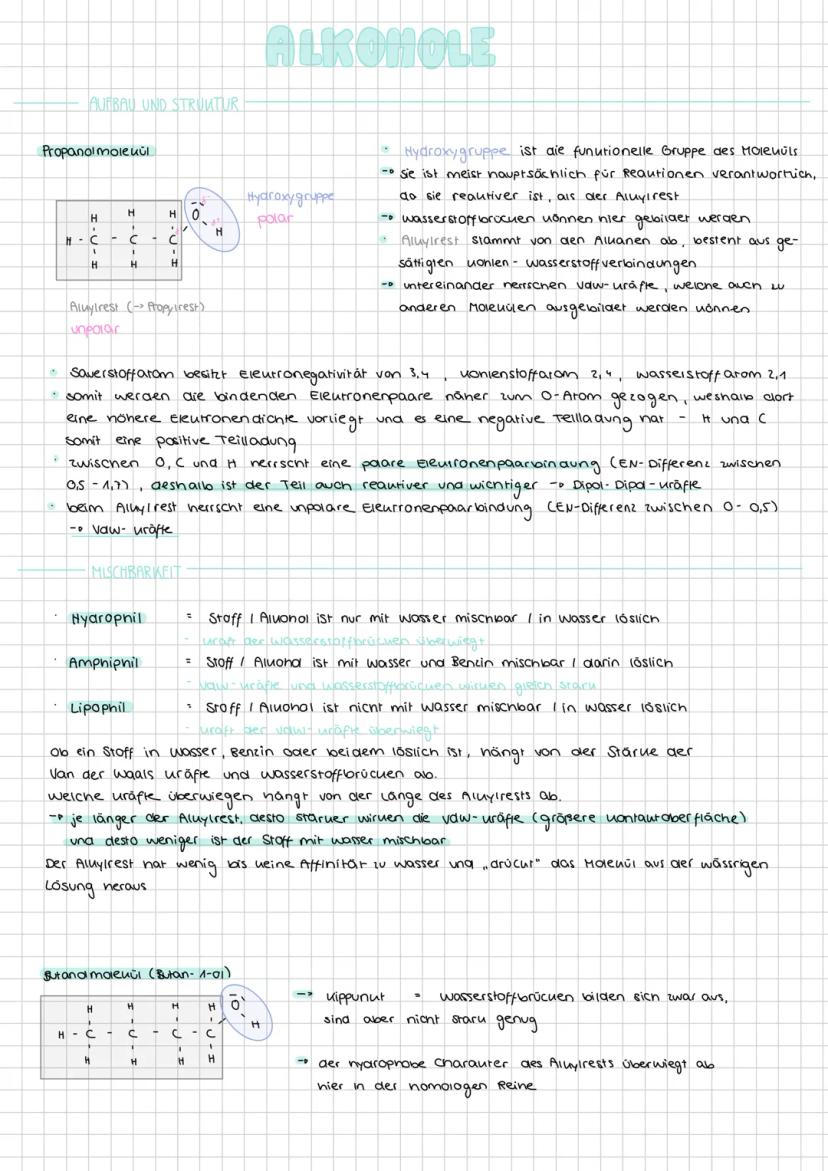 ALKOHOLE
AUFBAU UND STRUKTUR
Propanolmolekül
H H H O H
H - C - C - C
H H H
Hydroxygruppe
polar
Alkylrest (-> Propylrest)
unpolar
• Hydroxygruppe ist die funktionelle Gruppe des Moleküls
-> sie ist meist hauptsächlich für Reaktionen verantwortlich,
da sie reaktiver ist, als der Alkylrest
-> Wasserstoffbrücken können hier gebildet werden
• Alkylrest stammt von den Alkanen ab, besteht aus ge-
sättigten Kohlen-Wasserstoffverbindungen
-> untereinander herrschen VdW-Kräfte, welche auch zu
anderen Molekülen ausgebildet werden können
• Sauerstoffatom besitzt Elektronegativität von 3,4, Kohlenstoffatom 2,4, Wasserstoffatom 2,1
• somit werden die bindenden Elektronenpaare näher zum O-Atom gezogen, weshalb dort
eine höhere Elektronendichte vorliegt und es eine negative Teilladung hat - H und C
somit eine positive Teilladung
• zwischen O, C und H herrscht eine polare Elektronenpaarbindung (EN-Differenz zwischen
0,5 - 1,7), deshalb ist der Teil auch reaktiver und wichtiger -> Dipol-Dipol-Kräfte
• beim Alkylrest herrscht eine unpolare Elektronenpaarbindung (EN-Differenz zwischen 0 - 0,5)
-> VdW-Kräfte
MISCHBARKEIT
· Hydrophil = Stoff / Alkohol ist nur mit Wasser mischbar / in Wasser löslich
- Kraft der Wasserstoffbrücken überwiegt
· Amphiphil = Stoff / Alkohol ist mit Wasser und Benzin mischbar / darin löslich
- VdW-Kräfte und Wasserstoffbrücken wirken gleich stark
· Lipophil = Stoff / Alkohol ist nicht mit Wasser mischbar / in Wasser löslich
- Kraft der VdW-Kräfte überwiegt
Ob ein Stoff in Wasser, Benzin oder beidem löslich ist, hängt von der Stärke der
Van der Waals Kräfte und Wasserstoffbrücken ab.
Welche Kräfte überwiegen hängt von der Länge des Alkylrests ab.
-> je länger der Alkylrest, desto stärker wirken die VdW-Kräfte (größere Kontaktoberfläche)
und desto weniger ist der Stoff mit Wasser mischbar
Der Alkylrest hat wenig bis keine Affinität zu Wasser und „drückt" das Molekül aus der wässrigen
Lösung heraus
Butanolmolekül (Butan-1-ol)
H H H H O H
H - C - C - C - C
H H H H
-> Kippunkt = Wasserstoffbrücken bilden sich zwar aus,
sind aber nicht stark genug
-> der hydrophobe Charakter des Alkylrests überwiegt ab
hier in der homologen Reihe